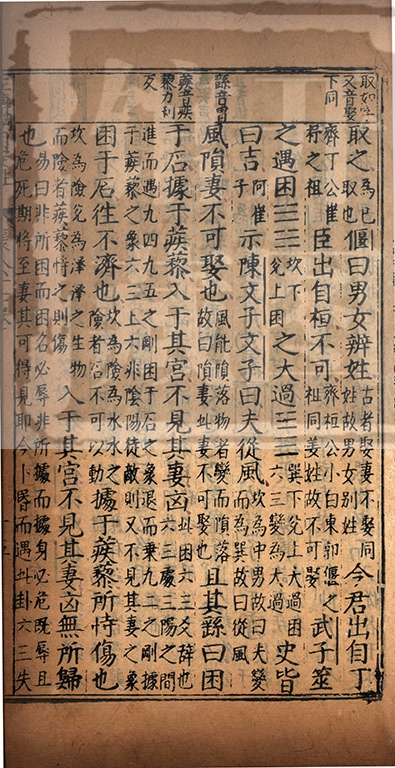 取如字
又音娶
下同
繇音胄
蒺音疾
藜力利
反
取之為己取也偃曰男女辨姓古者娶妻不娶同姓故男女別姓今君出自丁
齊丁公崔杼之祖臣出自桓不可齊桓公小白東郭偃之祖同姜姓故不可娶武子筮
之遇困䷮坎下兌上困之大過䷛巽下兌上大過六三變為大過史皆
曰吉阿崔子示陳文子文子曰夫從風坎為中男故曰夫變而為巽故曰從風
風隕妻不可娶也風能隕落物者變而隕落故曰隕妻此妻不可娶也且其繇曰困
于石據于蒺藜入于其宮不見其妻凶此困六三爻辭也六三處三陽之間
進而遇九四九五之剛困于石之象退而乘九二之剛據于蒺藜之象六三上六非陰陽徒敵則又不見其妻之象
困于石往不濟也坎為險為水水之險者石不可以動據于蒺藜所恃傷也
坎為險兌為澤澤之生物而險者蒺藜恃之則傷入于其宮不見其妻凶無所歸
也易曰非所困而困名必辱非所據而據身必危既辱且危死期將至妻其可得見耶今卜昏而遇此卦六三失